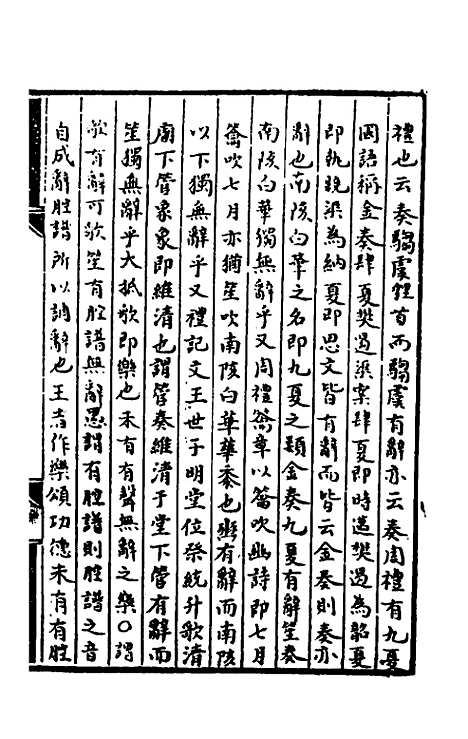 禮也云奏騶虞貍首而騶虞有辭亦云奏周禮有九夏
國語稱金奏肆夏樊遏渠案肆夏即時邁樊遏為韶夏
即執競渠為納夏即思文皆有辭而皆云金奏則奏亦
辭也南陔白華之名即九夏之類金奏九夏有辭笙奏
南陔白華獨無辭乎又周禮籥章以籥吹豳詩即七月
籥吹七月亦猶笙吹南陔白華華黍也豳有辭而南陔
以下獨無辭乎又禮記文王世子明堂位祭統升歌清
廟下管象象即維清也謂管奏維清于堂下管有辭而
笙獨無辭乎大抵歌即樂也未有有聲無辭之樂○謂
歌有辭可歌笙有腔譜無辭愚謂有腔譜則腔譜之音
自成辭腔譜所以調辭也王者作樂頌功德未有有腔